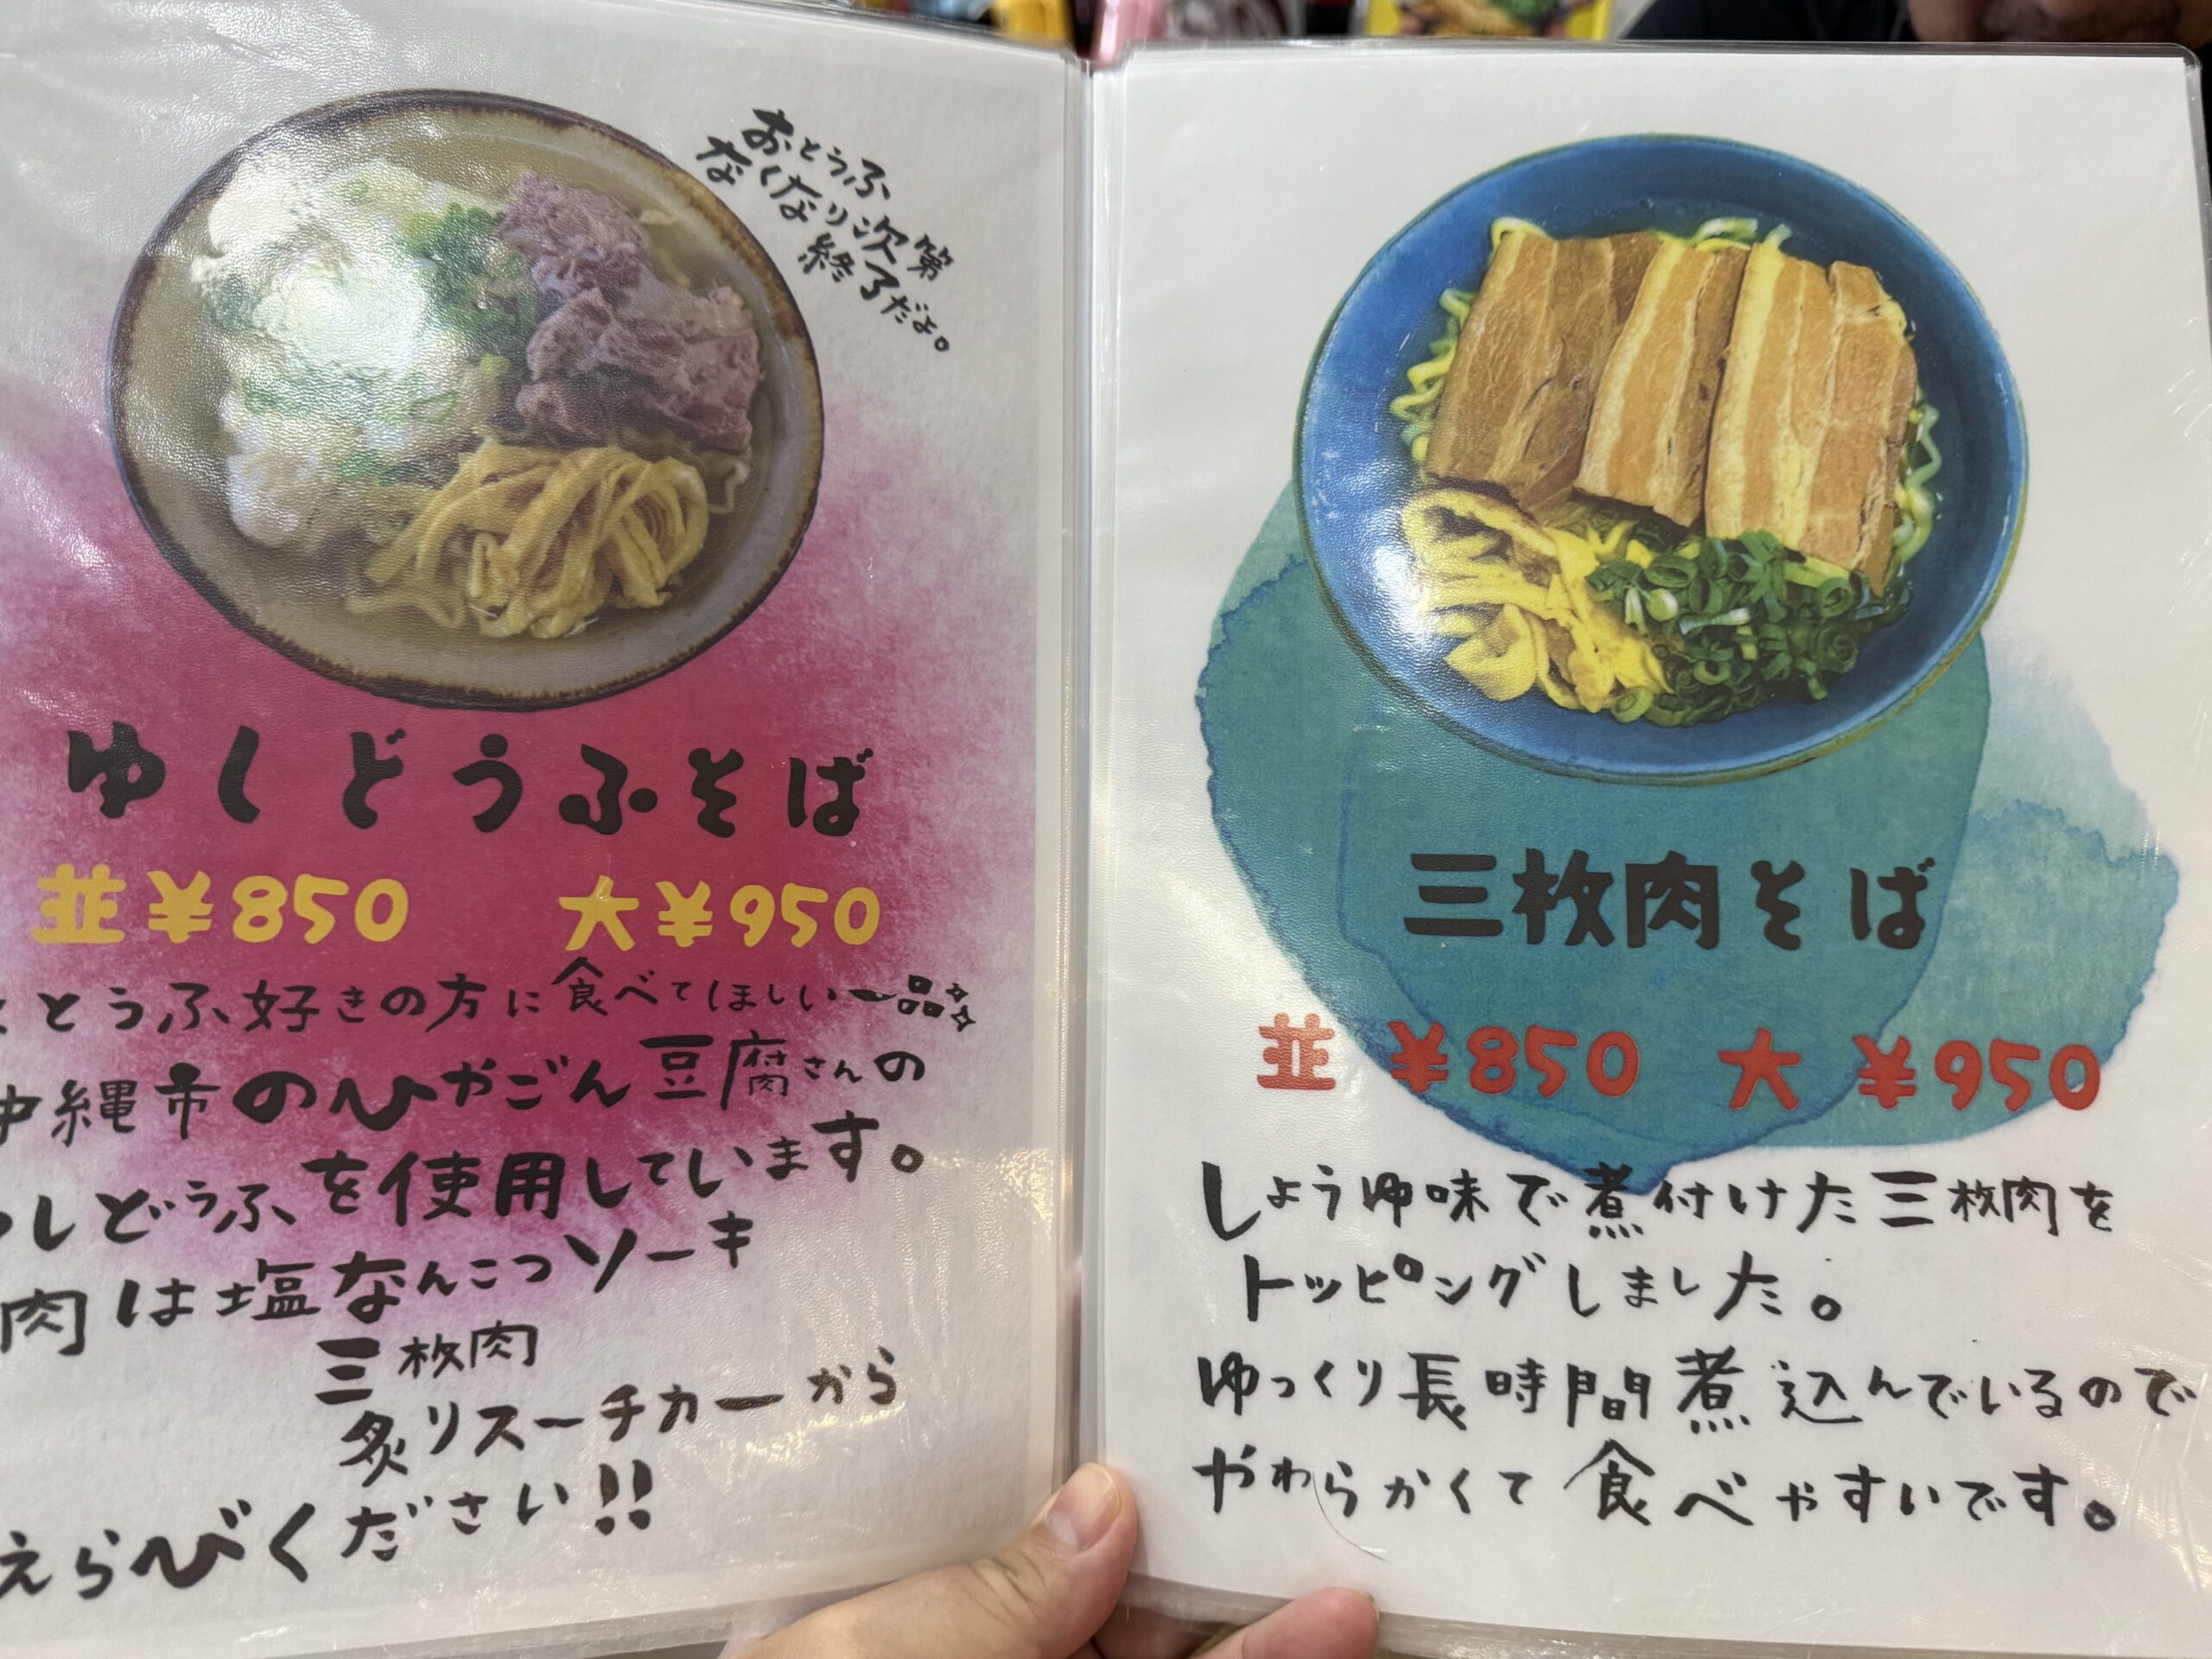 おとうふ
なくなり次第
終了だよ。
ゆしどうふそば
並¥850 大¥950
とうふ好きの方に食べてほしい一品
沖縄市のひやごん豆腐さんの
しどうふを使用しています。
肉は塩なんこつソーキ
三枚肉
炙りスーチカーから
えらびください!!
三枚肉そば
並 ¥850 大 ¥950
しょうゆ味で煮付けた三枚肉を
トッピングしました。
ゆっくり長時間煮込んでいるので
やわらかくて食べやすいです。